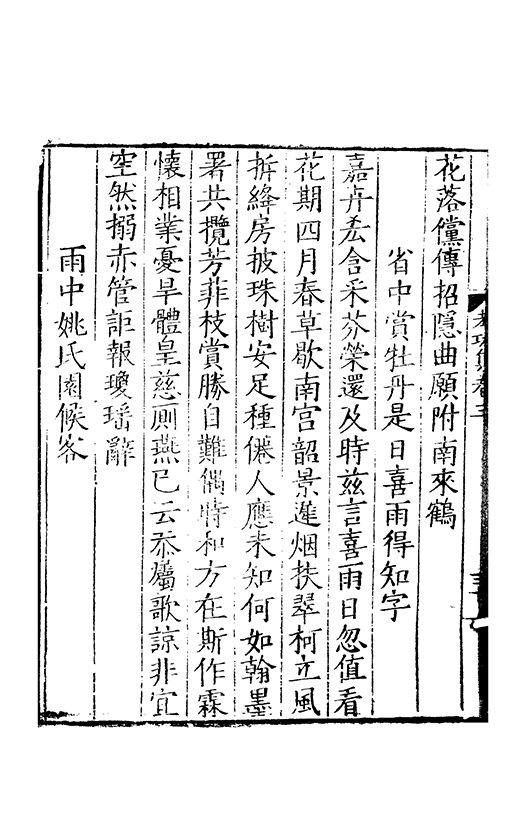 花落儻傳招隱曲願附南來鶴
省中賞牡丹是日喜雨得知字
嘉卉厺含采芬榮還及時兹言喜雨日忽值看
花期四月春草歇南宫韶景遲烟扶翠柯立風
拆絳房披珠樹安足種僊人應未知何如翰墨
署共攬芳菲枝賞勝自難偶時和方在斯作霖
懷相業憂旱體皇慈厠燕已云忝屬歌諒非宜
空然搦赤管詎報瓊瑶辭
雨中姚氏園候客